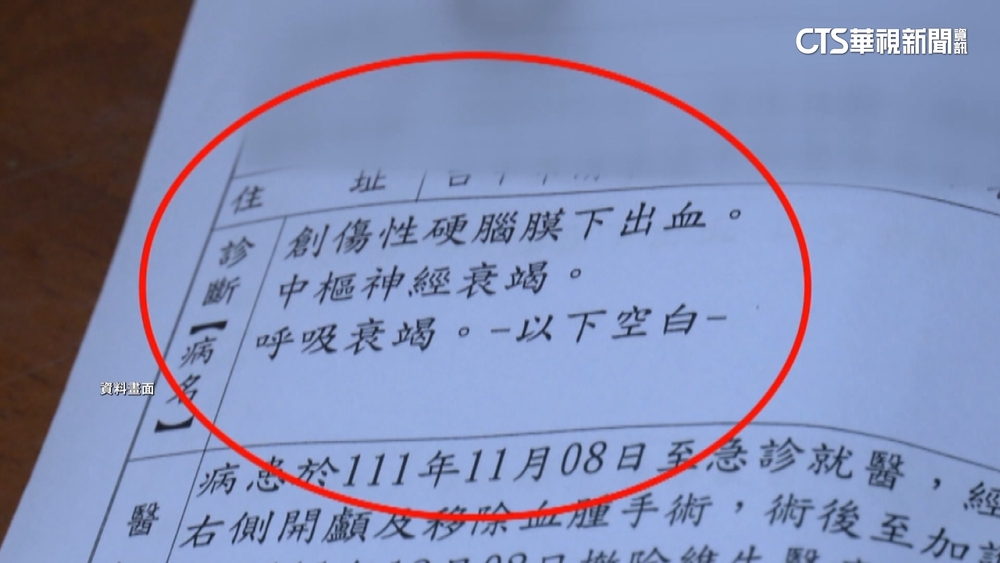 CTS華視新聞資訊
住 址
診斷【病名】
創傷性硬腦膜下出血。
中樞神經衰竭。
呼吸衰竭。-以下空白-
資料畫面
醫
病患於111年11月08日至急診就醫，經
右側開顱及移除血腫手術，術後至加